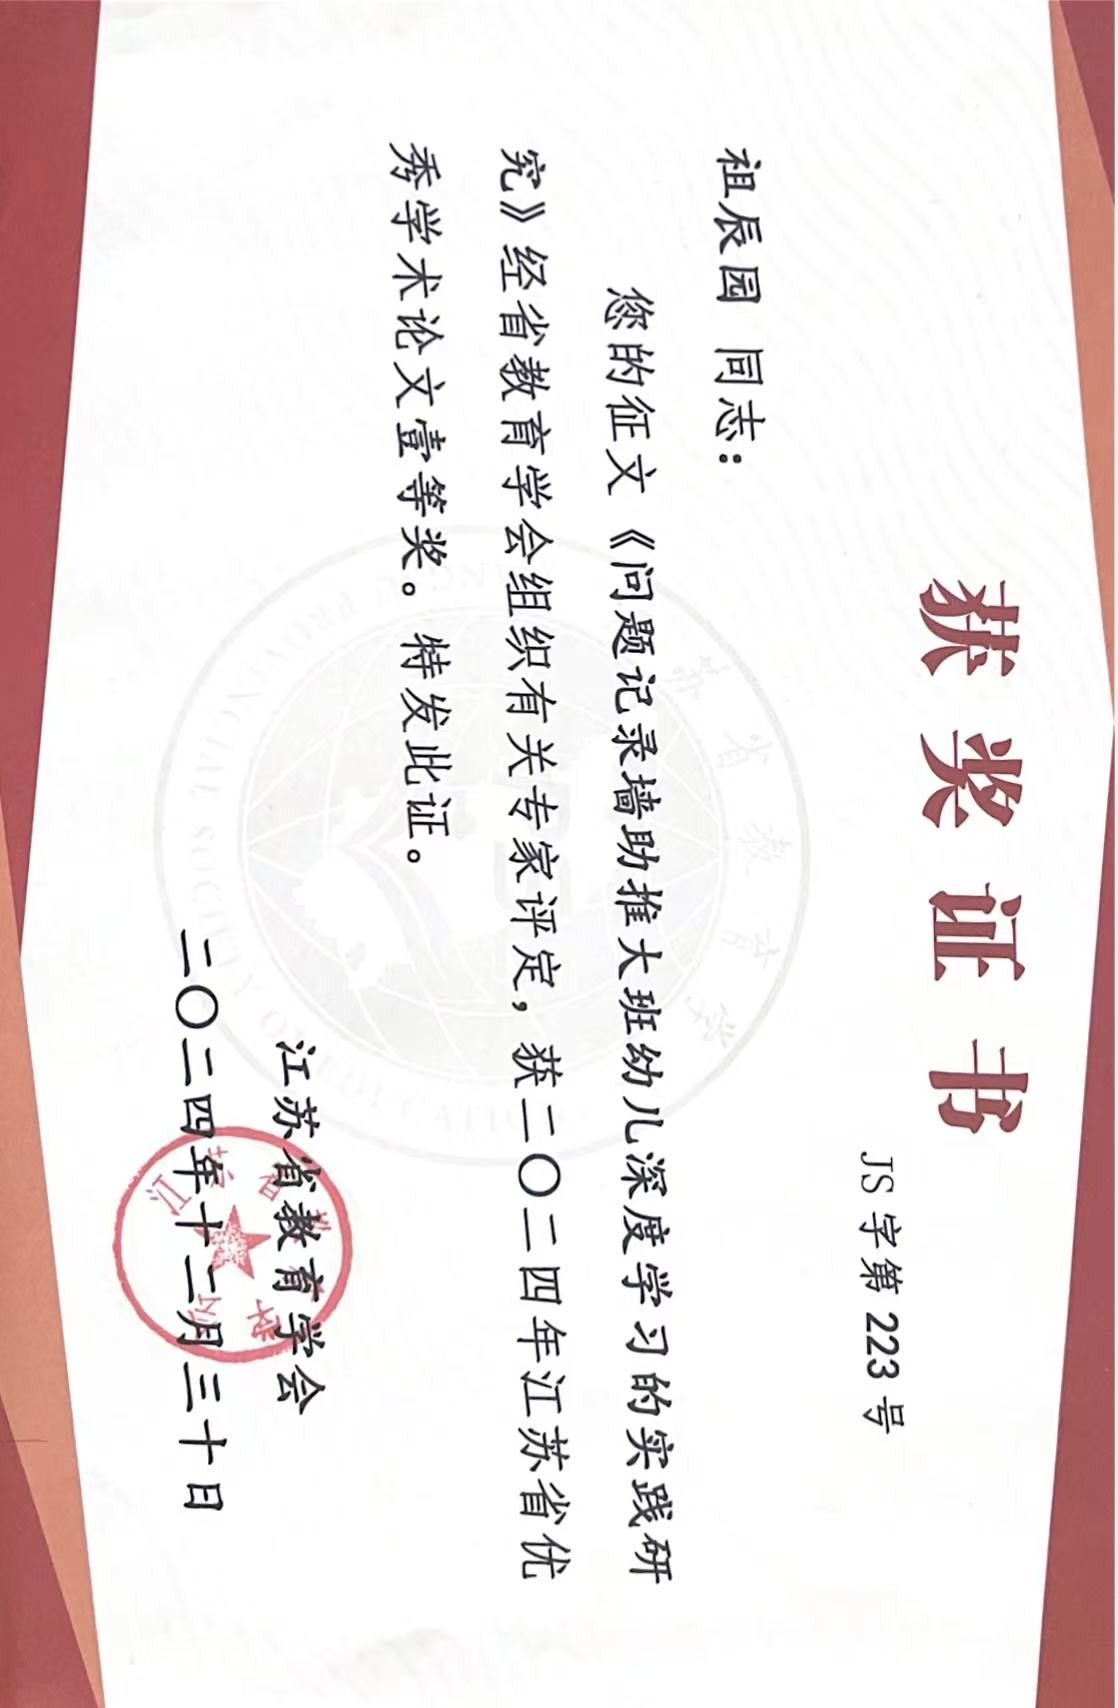 获奖证书
JS字第223号
祖辰园 同志：
您的征文《问题记录墙助推大班幼儿深度学习的实践研
究》经省教育学会组织有关专家评定，获二〇二四年江苏省优
秀学术论文壹等奖。特发此证。
江苏省教育学会
二〇二四年十二月三十日
苏省教育学
PROVINCIAL SOCIETY OF EDUCATION